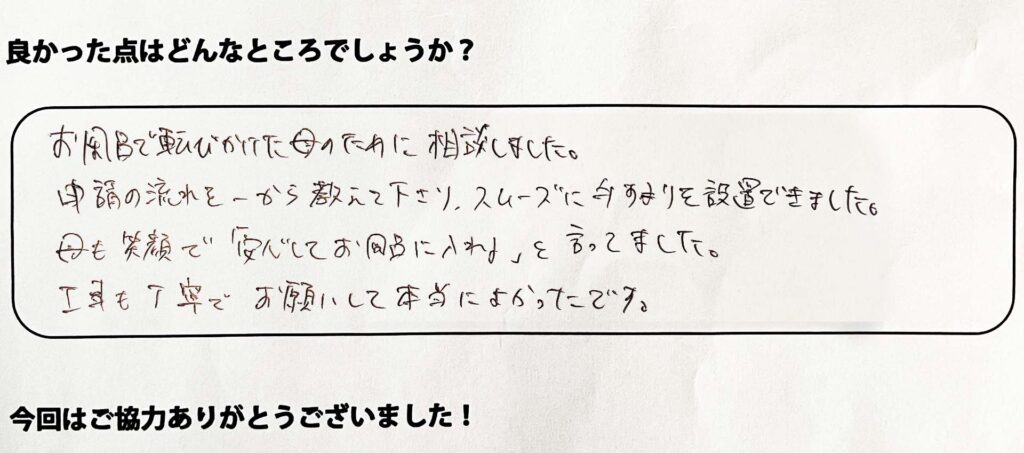 良かった点はどんなところでしょうか？
お風呂で転びかけた母のために相談しました。
申請の流れを一から教えて下さり、スムーズに手すりを設置できました。
母も笑顔で「安心してお風呂に入れる」と言ってました。
工事も丁寧でお願いして本当によかったです。
今回はご協力ありがとうございました！